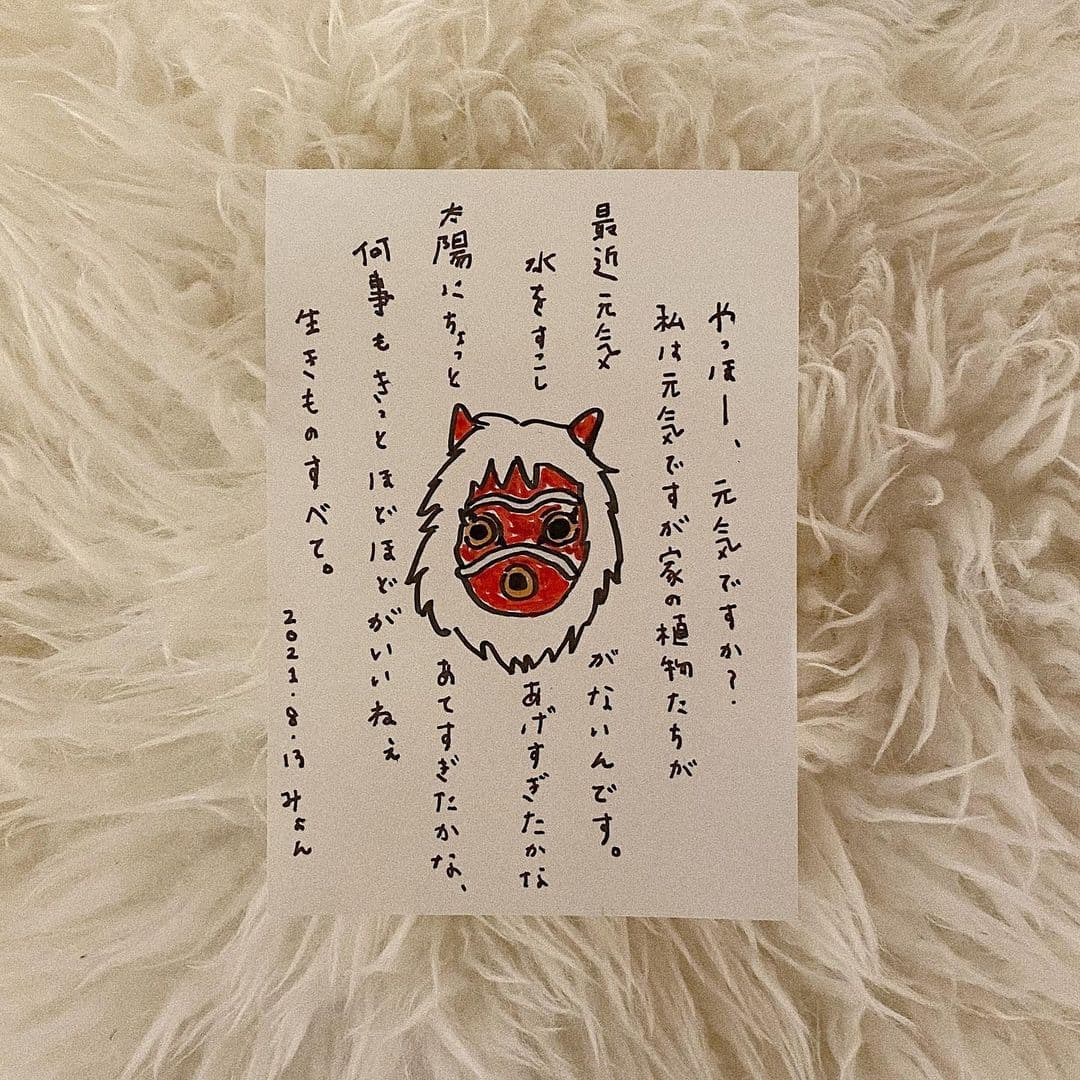 やっほー、元気ですか？
私は元気ですが家の植物たちが
最近元気がないんです。
水をすこしあげすぎたかな
太陽にちょっとあてすぎたかな、
何事もきっとほどほどがいいねぇ
生きものすべて。
2021.8.13 みょん